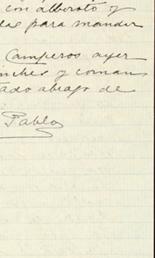 con alboroto y
las para mandar
Camperos ayer
nches y coman
tado abajo de
Pablo